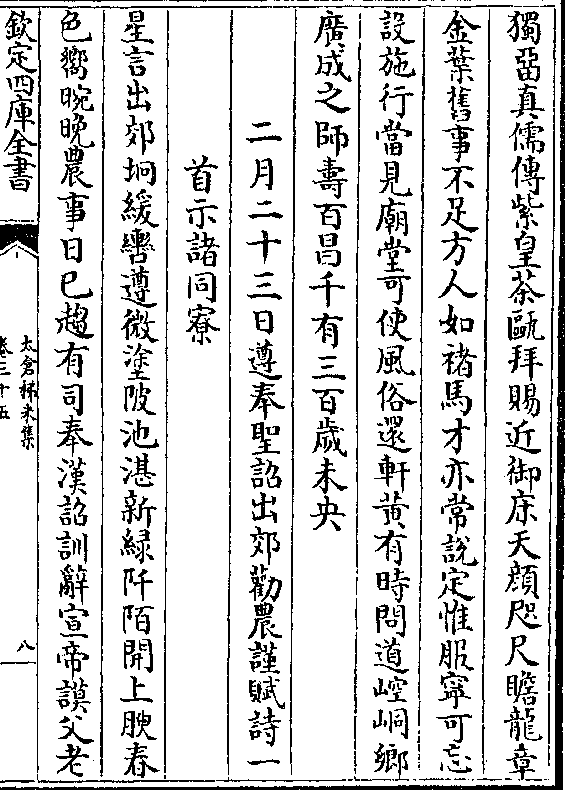 獨畱真儒傳紫皇茶甌拜賜近御床天顔咫尺瞻龍章
金葉舊事不足方人如褚馬才亦常說定惟服寜可忘
設施行當見廟堂可使風俗還軒黄有時問道崆峒鄉
廣成之師壽百昌千有三百歲未央
二月二十三日遵奉聖詔出郊勸農謹賦詩一
首示諸同寮
星言出郊坰緩轡遵微塗陂池湛新緑阡陌開上腴春
色嚮晼晚農事日已趨有司奉漢詔訓辭宣帝謨父老
欽定四庫全書
太倉稊米集
卷三十五
八